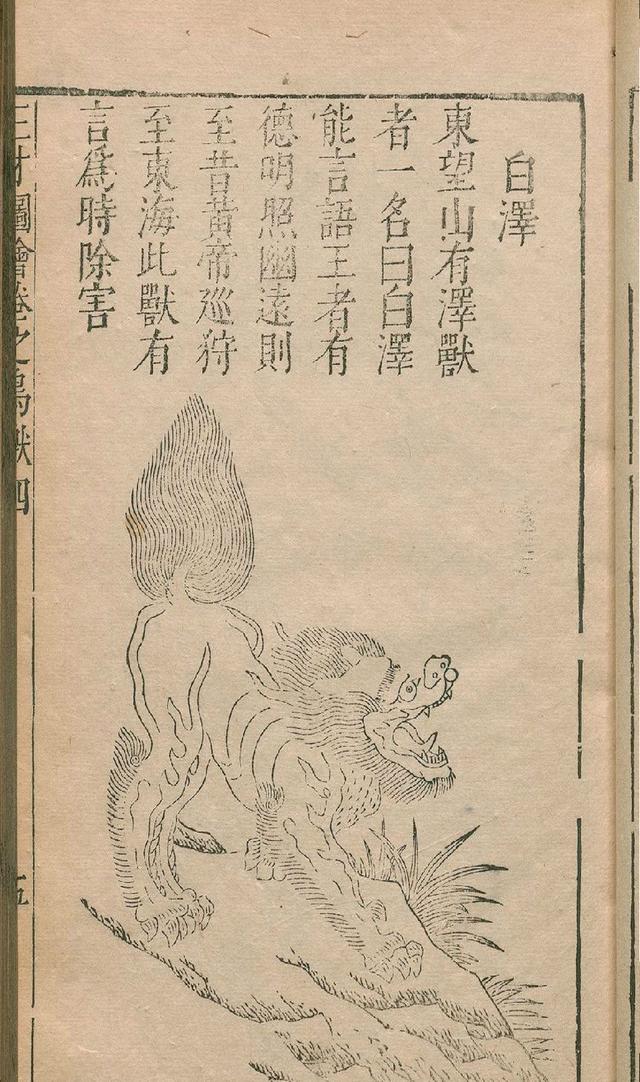 白澤
東望山有澤獸
者一名曰白澤
能言語王者有
德明照幽遠則
至昔黃帝巡狩
至東海此獸有
言爲時除害
三才圖會卷之鳥獸四
五